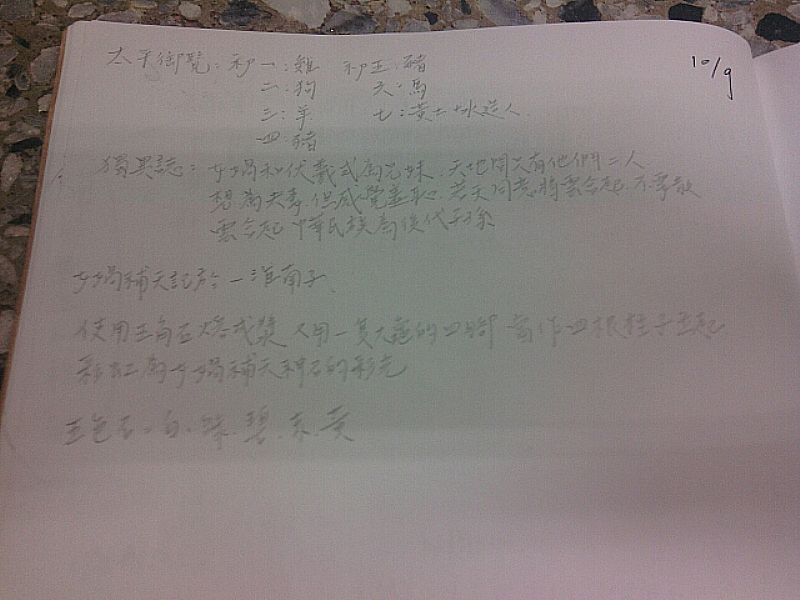 太平御覽：初一：雞　初五：豬
10/9
二：狗　六：馬
三：羊　七：黃土+水造人
四：豬
獨異誌：女媧和伏羲式為兄妹，天地間只有他們二人
想為夫妻，但感覺羞恥，若天同意將雲合起，不要散
雲合起 中華民族為後代子孫
女媧補天記於－淮南子
使用五角石熔成漿 又用一隻大龜的四腳 當作四根柱子立起
彩虹為女媧補天神石的彩光
五色石：白、碧、赤、黃